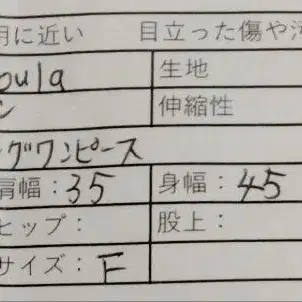 用に近い 目立った傷や汚
oula 生地
ン 伸縮性
グワンピース
肩幅：35 身幅：45
ヒップ： 股上：
サイズ：F